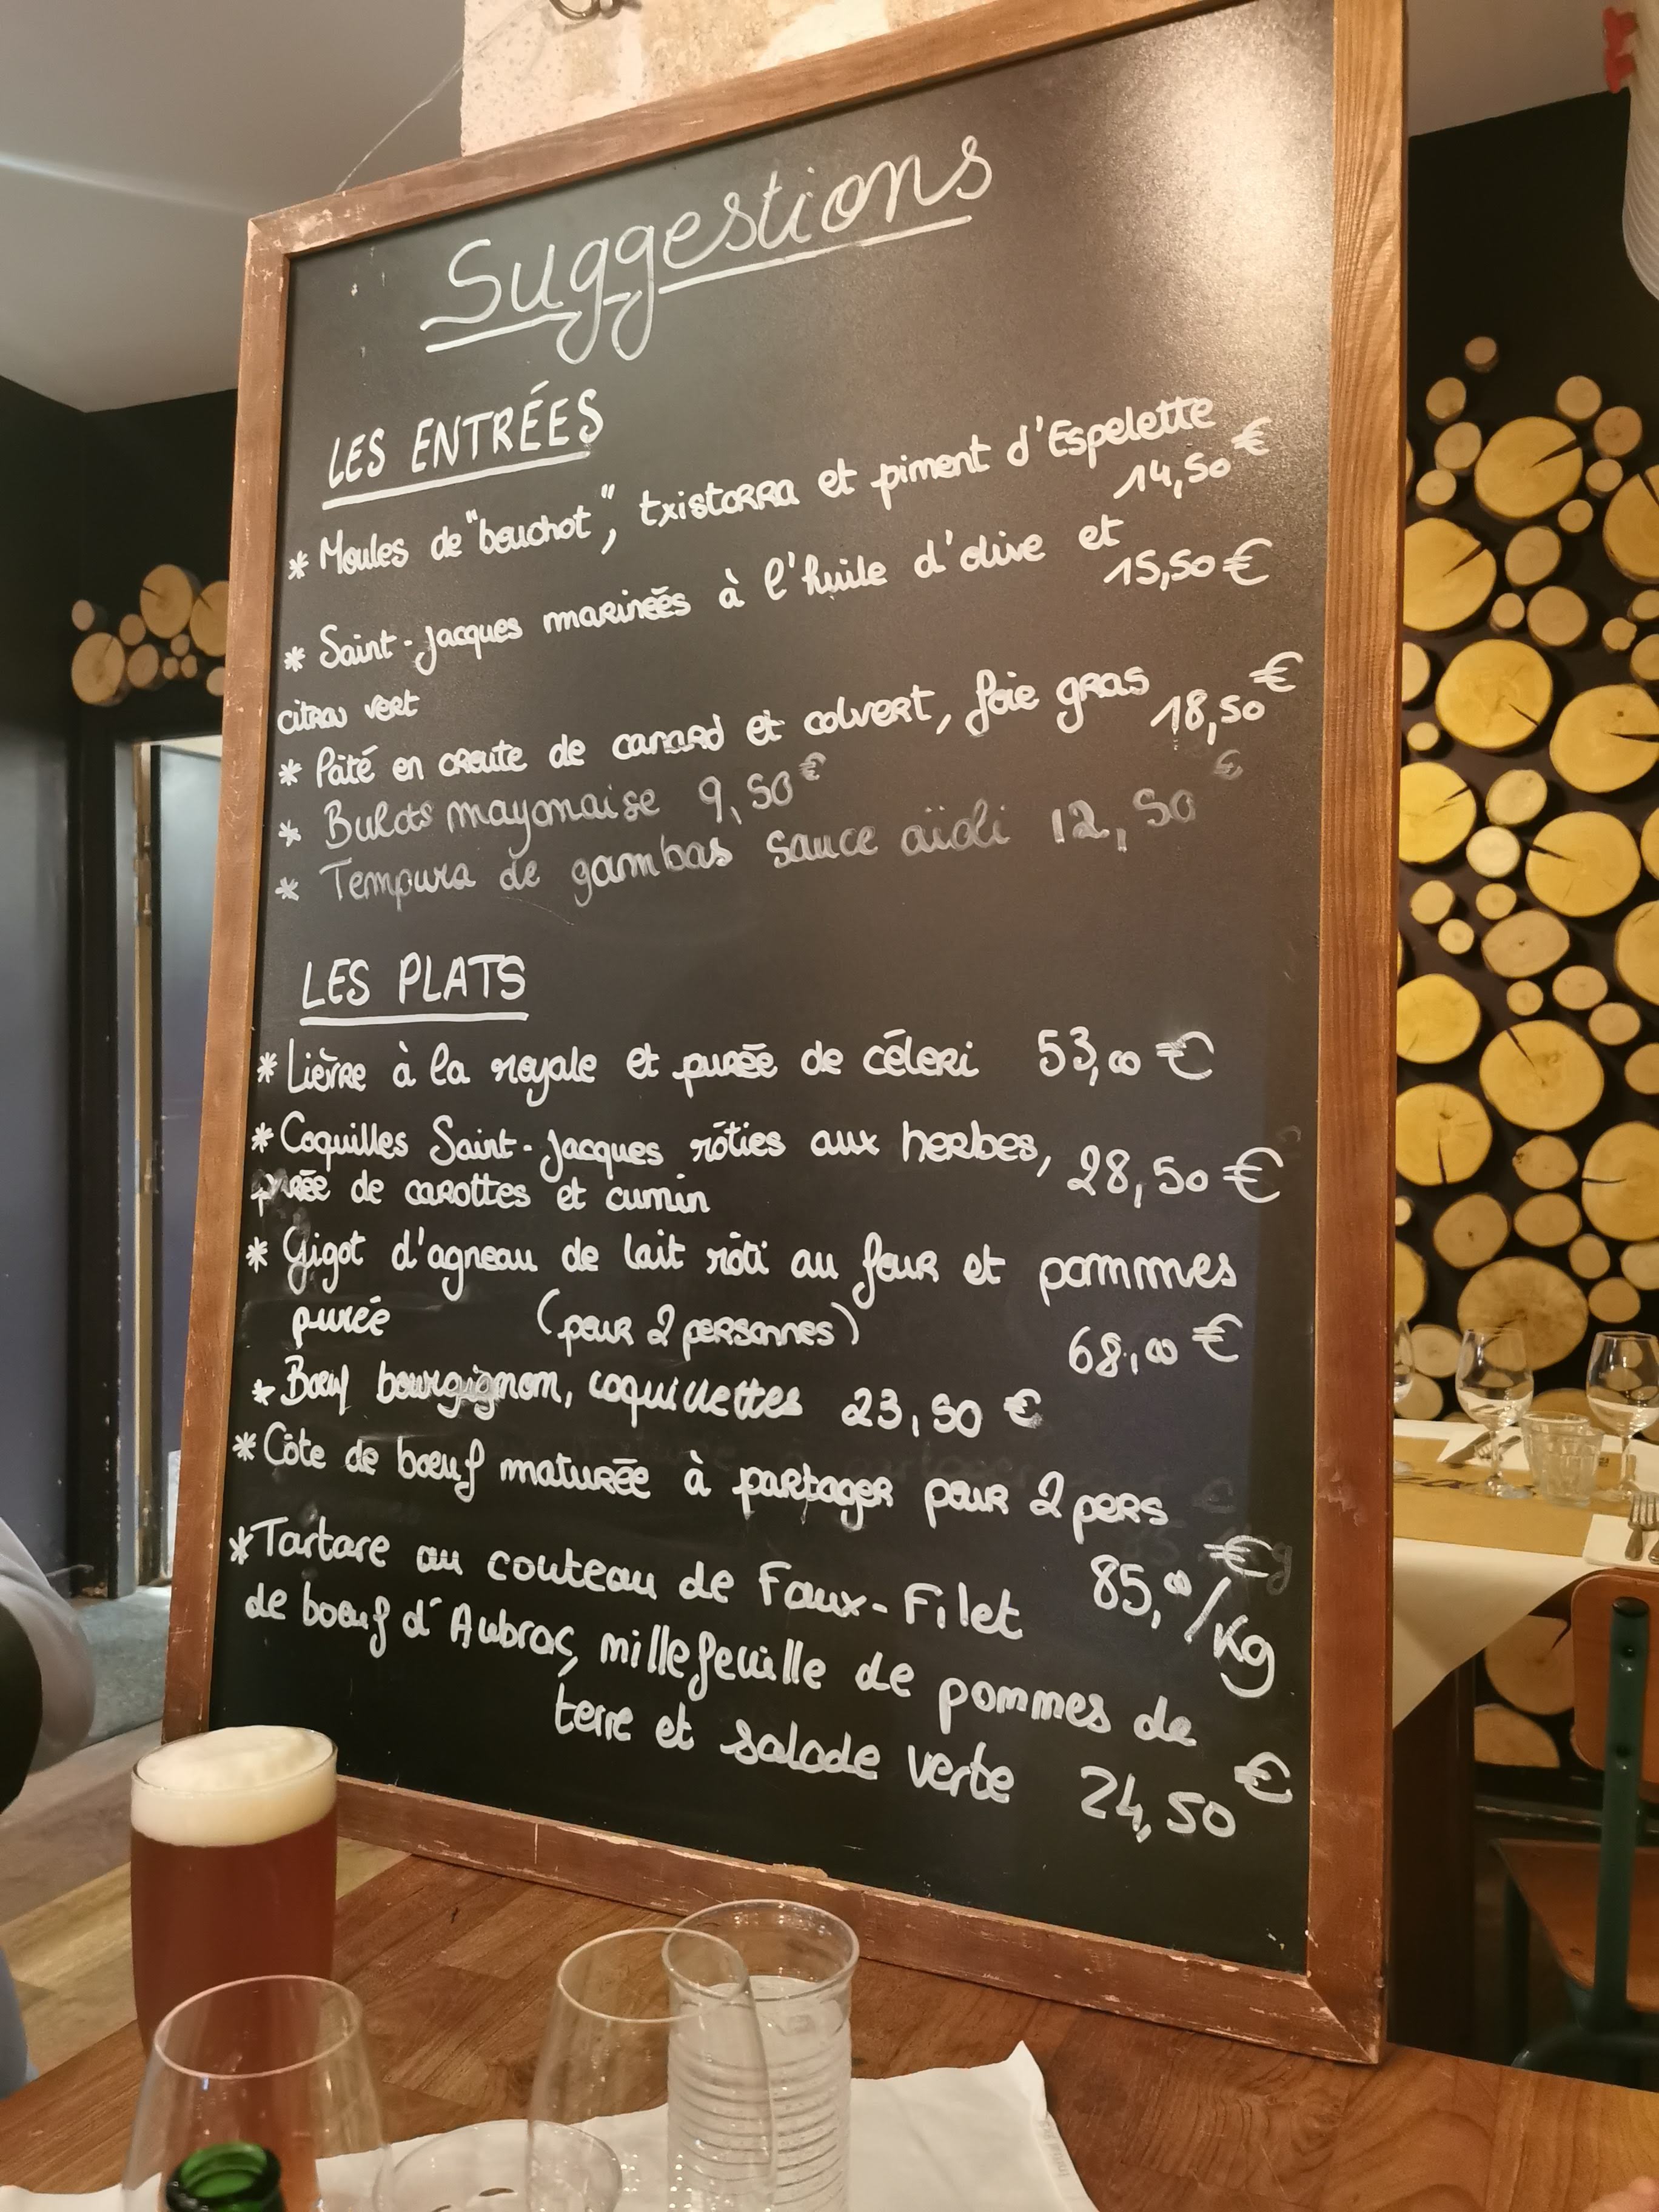 Suggestions
LES ENTRÉES
* Moules de "bouchot", txistorra et piment d'Espelette
14,50 €
* Saint-Jacques marinées à l'huile d'olive et
15,50 €
citron vert
* Pâté en croute de canard et colvert, foie gras 18,50 €
* Bulots mayonaise 9,50 €
* Tempura de gambas sauce aïoli 12,50 €
LES PLATS
* Lièvre à la royale et purée de céleri 53,00 €
* Coquilles Saint-Jacques rôties aux herbes, 28,50 €
purée de carottes et cumin
* Gigot d'agneau de lait rôti au four et pommes
purée (pour 2 personnes) 68,00 €
* Bœuf bourgignom, coquillettes 23,50 €
* Côte de bœuf maturée à partager pour 2 pers
85,00 €/Kg
* Tartare au couteau de Faux-Filet
de boeuf d'Aubrac, millefeuille de pommes de
terre et salade verte 24,50 €